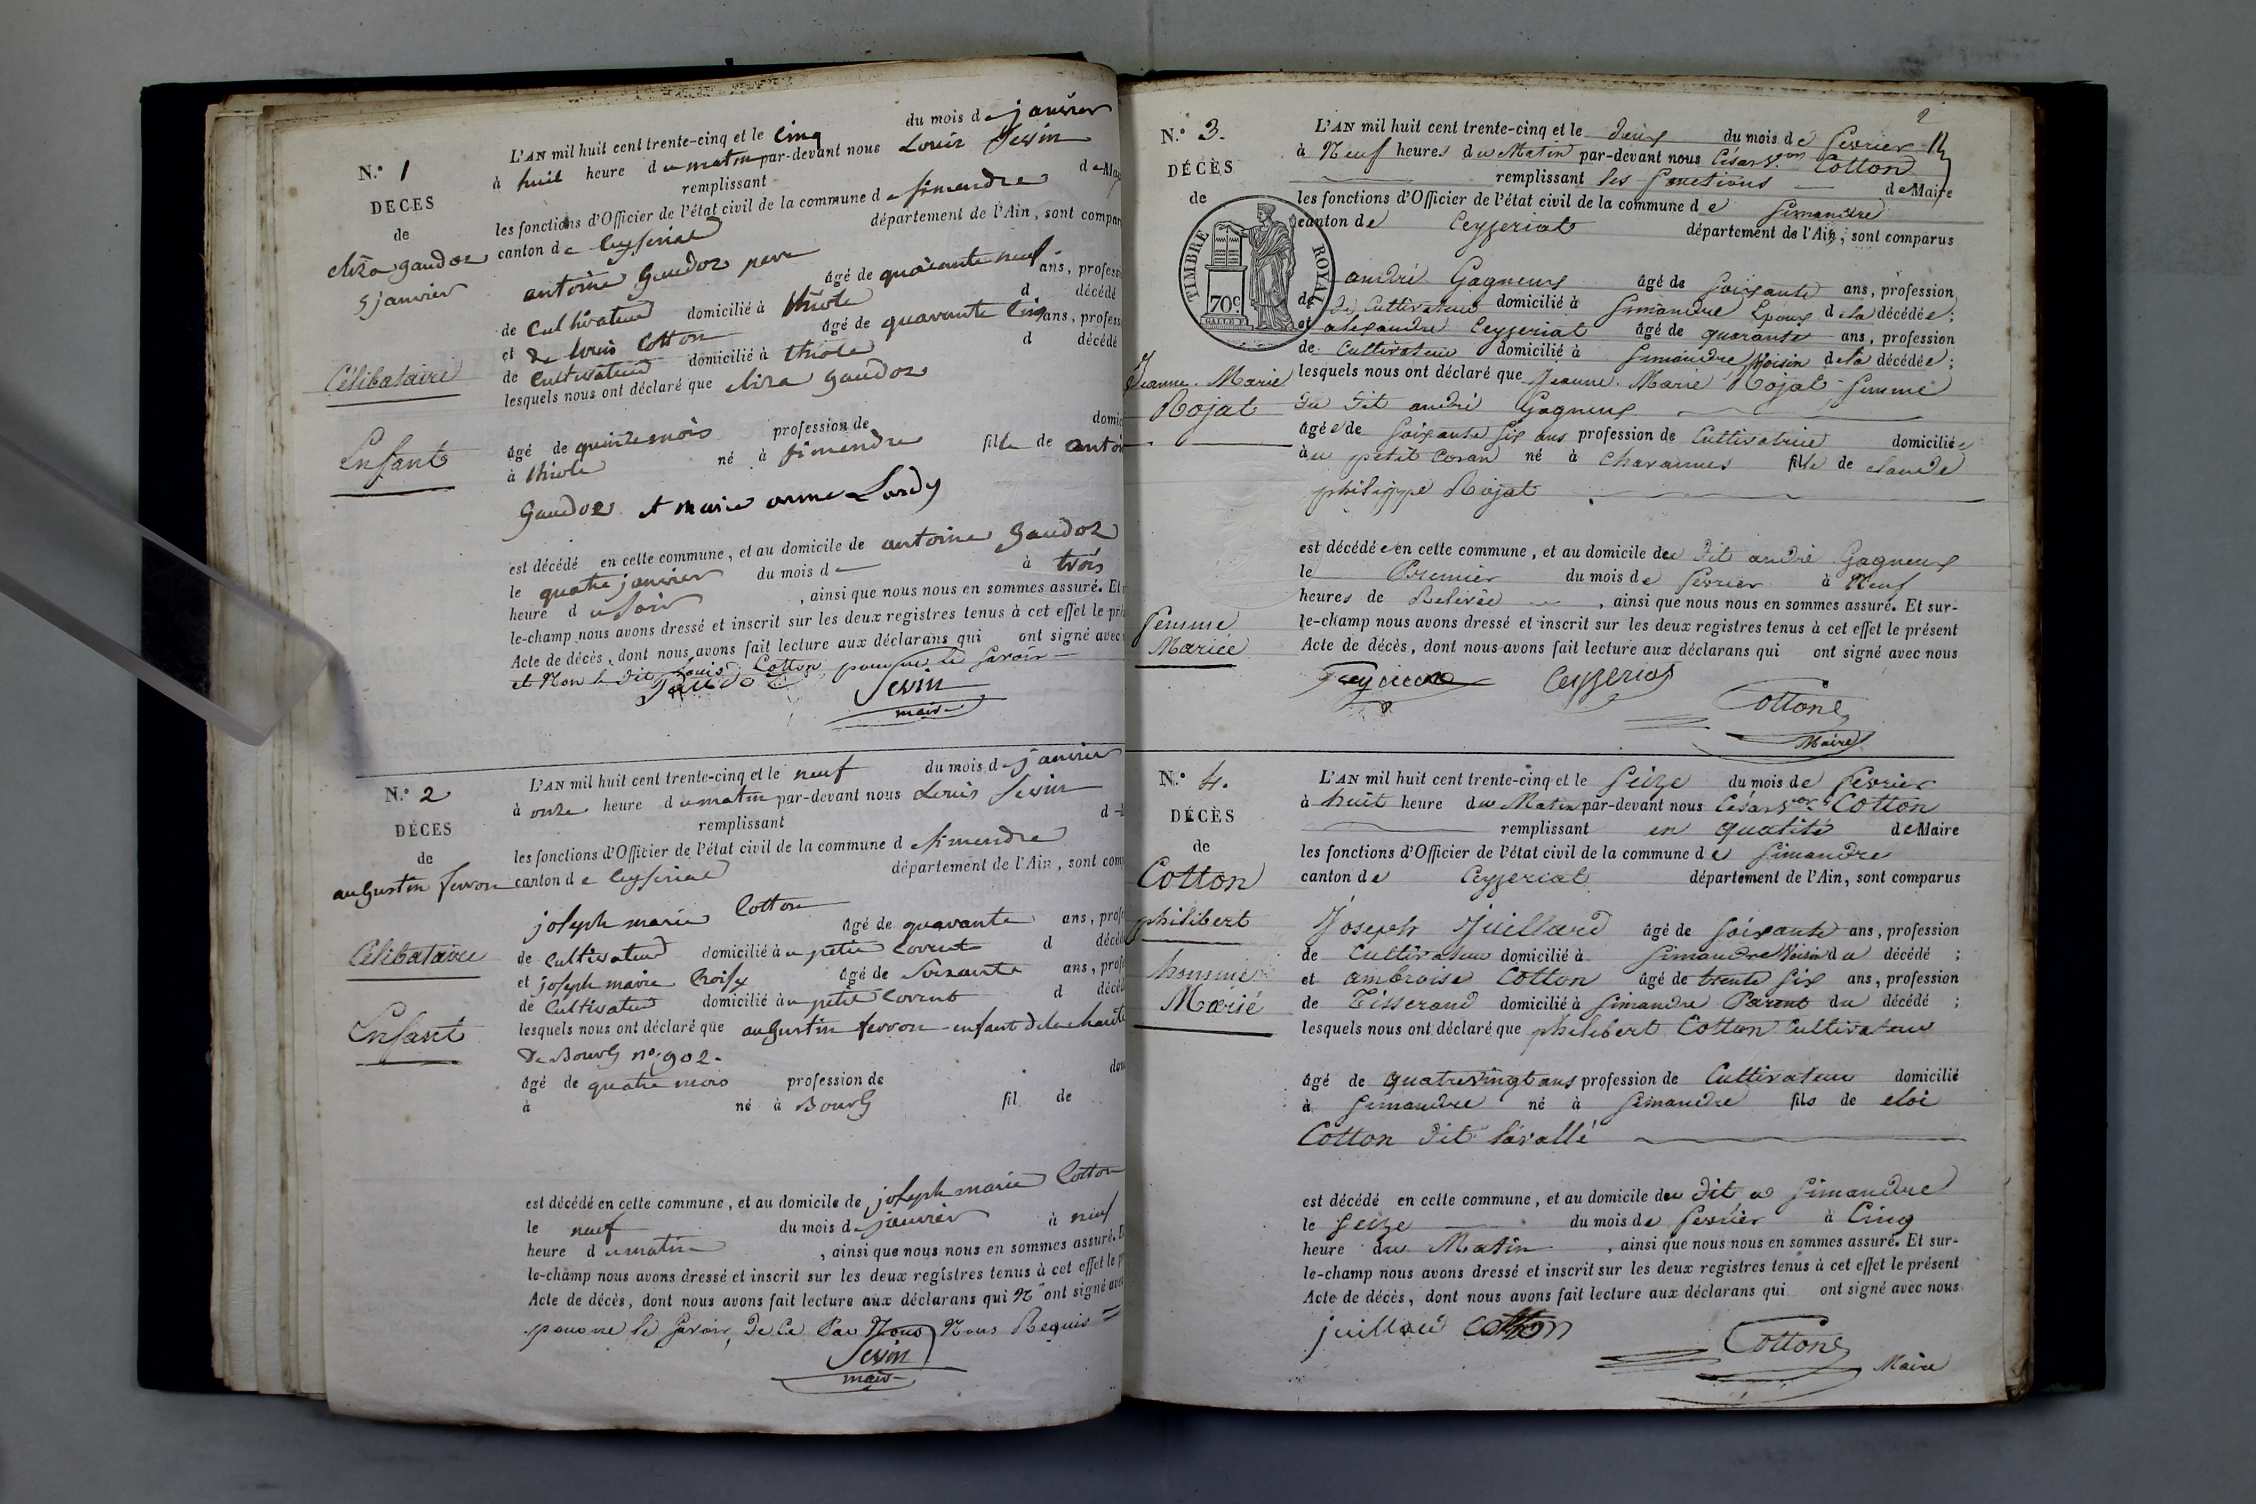 N.° 1
DÉCÈS
de
eliza gaudoz
5 janvier
Célibataire
Enfant
L'AN mil huit cent trente-cinq et le cinq du mois de janvier
à huit heure du matin par-devant nous Louis Sevin
remplissant de
les fonctions d'Officier de l'état civil de la commune de Simandre
canton de département de l'Ain, sont
antoine Gaudoz pere âgé de quarante neuf ans,
de Cultivateur domicilié à thiole d décédé
et de louis Cotton âgé de quarante cinq ans,
de Cultivateur domicilié à thiole d décédé
lesquels nous ont déclaré que eliza gaudoz
âgé de quinze mois profession de
à thiole né à simendre fille de
Gaudoz et marie anne
est décédé en cette commune, et au domicile de antoine gaudoz
le quatre janvier du mois de à trois
heure du soir, ainsi que nous nous en sommes assuré. Et
le-champ nous avons dressé et inscrit sur les deux registres tenus à cet effet le
Acte de décès, dont nous avons fait lecture aux déclarans qui ont signé avec
et Non le dit Louis Cotton pour ne le savoir
Gaudoz Sevin
maire
N.° 2
DÉCÈS
de
augustin
Célibataire
Enfant
L'AN mil huit cent trente-cinq et le neuf du mois de janvier
à onze heure du matin par-devant nous Louis Sevin
remplissant
les fonctions d'Officier de l'état civil de la commune de simendre
canton de département de l'Ain, sont
joseph marie Cotton âgé de quarante ans,
de Cultivateur domicilié au petit d
et joseph marie âgé de soixante ans,
de Cultivateur domicilié au petit d
lesquels nous ont déclaré que augustin enfant de la
De Bourg n° 902.
âgé de quatre mois profession de
à né à Bourg fil de
est décédé en cette commune, et au domicile de joseph marie Cotton
le neuf du mois de janvier à neuf
heure du matin, ainsi que nous nous en sommes assuré.
le-champ nous avons dressé et inscrit sur les deux registres tenus à cet effet le
Acte de décès, dont nous avons fait lecture aux déclarans qui N'ont signé
pour ne le savoir, de ce Par Nous Requis
Sevin
maire
2
N.° 3.
DÉCÈS
de
TIMBRE ROYAL
70c
Jeanne Marie
Rojat
femme
Mariée
L'AN mil huit cent trente-cinq et le deux du mois de Fevrier
à Neuf heures du Matin par-devant nous César Cotton
remplissant les fonctions de Maire
les fonctions d'Officier de l'état civil de la commune de Simandre
canton de Ceyzeriat département de l'Ain, sont comparus
andré Gagneux âgé de soixante ans, profession
de Cultivateur domicilié à Simandre Epoux de la décédée;
et alexandre Ceyzeriat âgé de quarante ans, profession
de Cultivateur domicilié à Simandre Voisin de la décédée;
lesquels nous ont déclaré que Jeanne Marie Rojat femme
du dit andré Gagneux
âgée de soixante six ans profession de Cultivatrice domiciliée
au petit Coran né à Chavannes fille de claude
philippe Rojat
est décédée en cette commune, et au domicile du dit andré Gagneux
le Premier du mois de fevrier à Neuf
heures de Relevée, ainsi que nous nous en sommes assuré. Et sur-
le-champ nous avons dressé et inscrit sur les deux registres tenus à cet effet le présent
Acte de décès, dont nous avons fait lecture aux déclarans qui ont signé avec nous
Ceyzeriat
Cotton
Maire
N.° 4.
DÉCÈS
de
Cotton
philibert
homme
Marié
L'AN mil huit cent trente-cinq et le seize du mois de fevrier
à huit heure du Matin par-devant nous César Cotton
remplissant en qualité de Maire
les fonctions d'Officier de l'état civil de la commune de Simandre
canton de Ceyzeriat département de l'Ain, sont comparus
Joseph Juillard âgé de soixante ans, profession
de Cultivateur domicilié à Simandre Voisin du décédé;
et ambroise Cotton âgé de trente six ans, profession
de Tisserand domicilié à Simandre Parent du décédé;
lesquels nous ont déclaré que philibert Cotton Cultivateur
âgé de quatrevingt ans profession de Cultivateur domicilié
à Simandre né à Simandre fils de eloi
Cotton dit
est décédé en cette commune, et au domicile du dit a Simandre
le Seize du mois de fevrier à Cinq
heure du Matin, ainsi que nous nous en sommes assuré. Et sur-
le-champ nous avons dressé et inscrit sur les deux registres tenus à cet effet le présent
Acte de décès, dont nous avons fait lecture aux déclarans qui ont signé avec nous
juillard cotton
Cotton
Maire